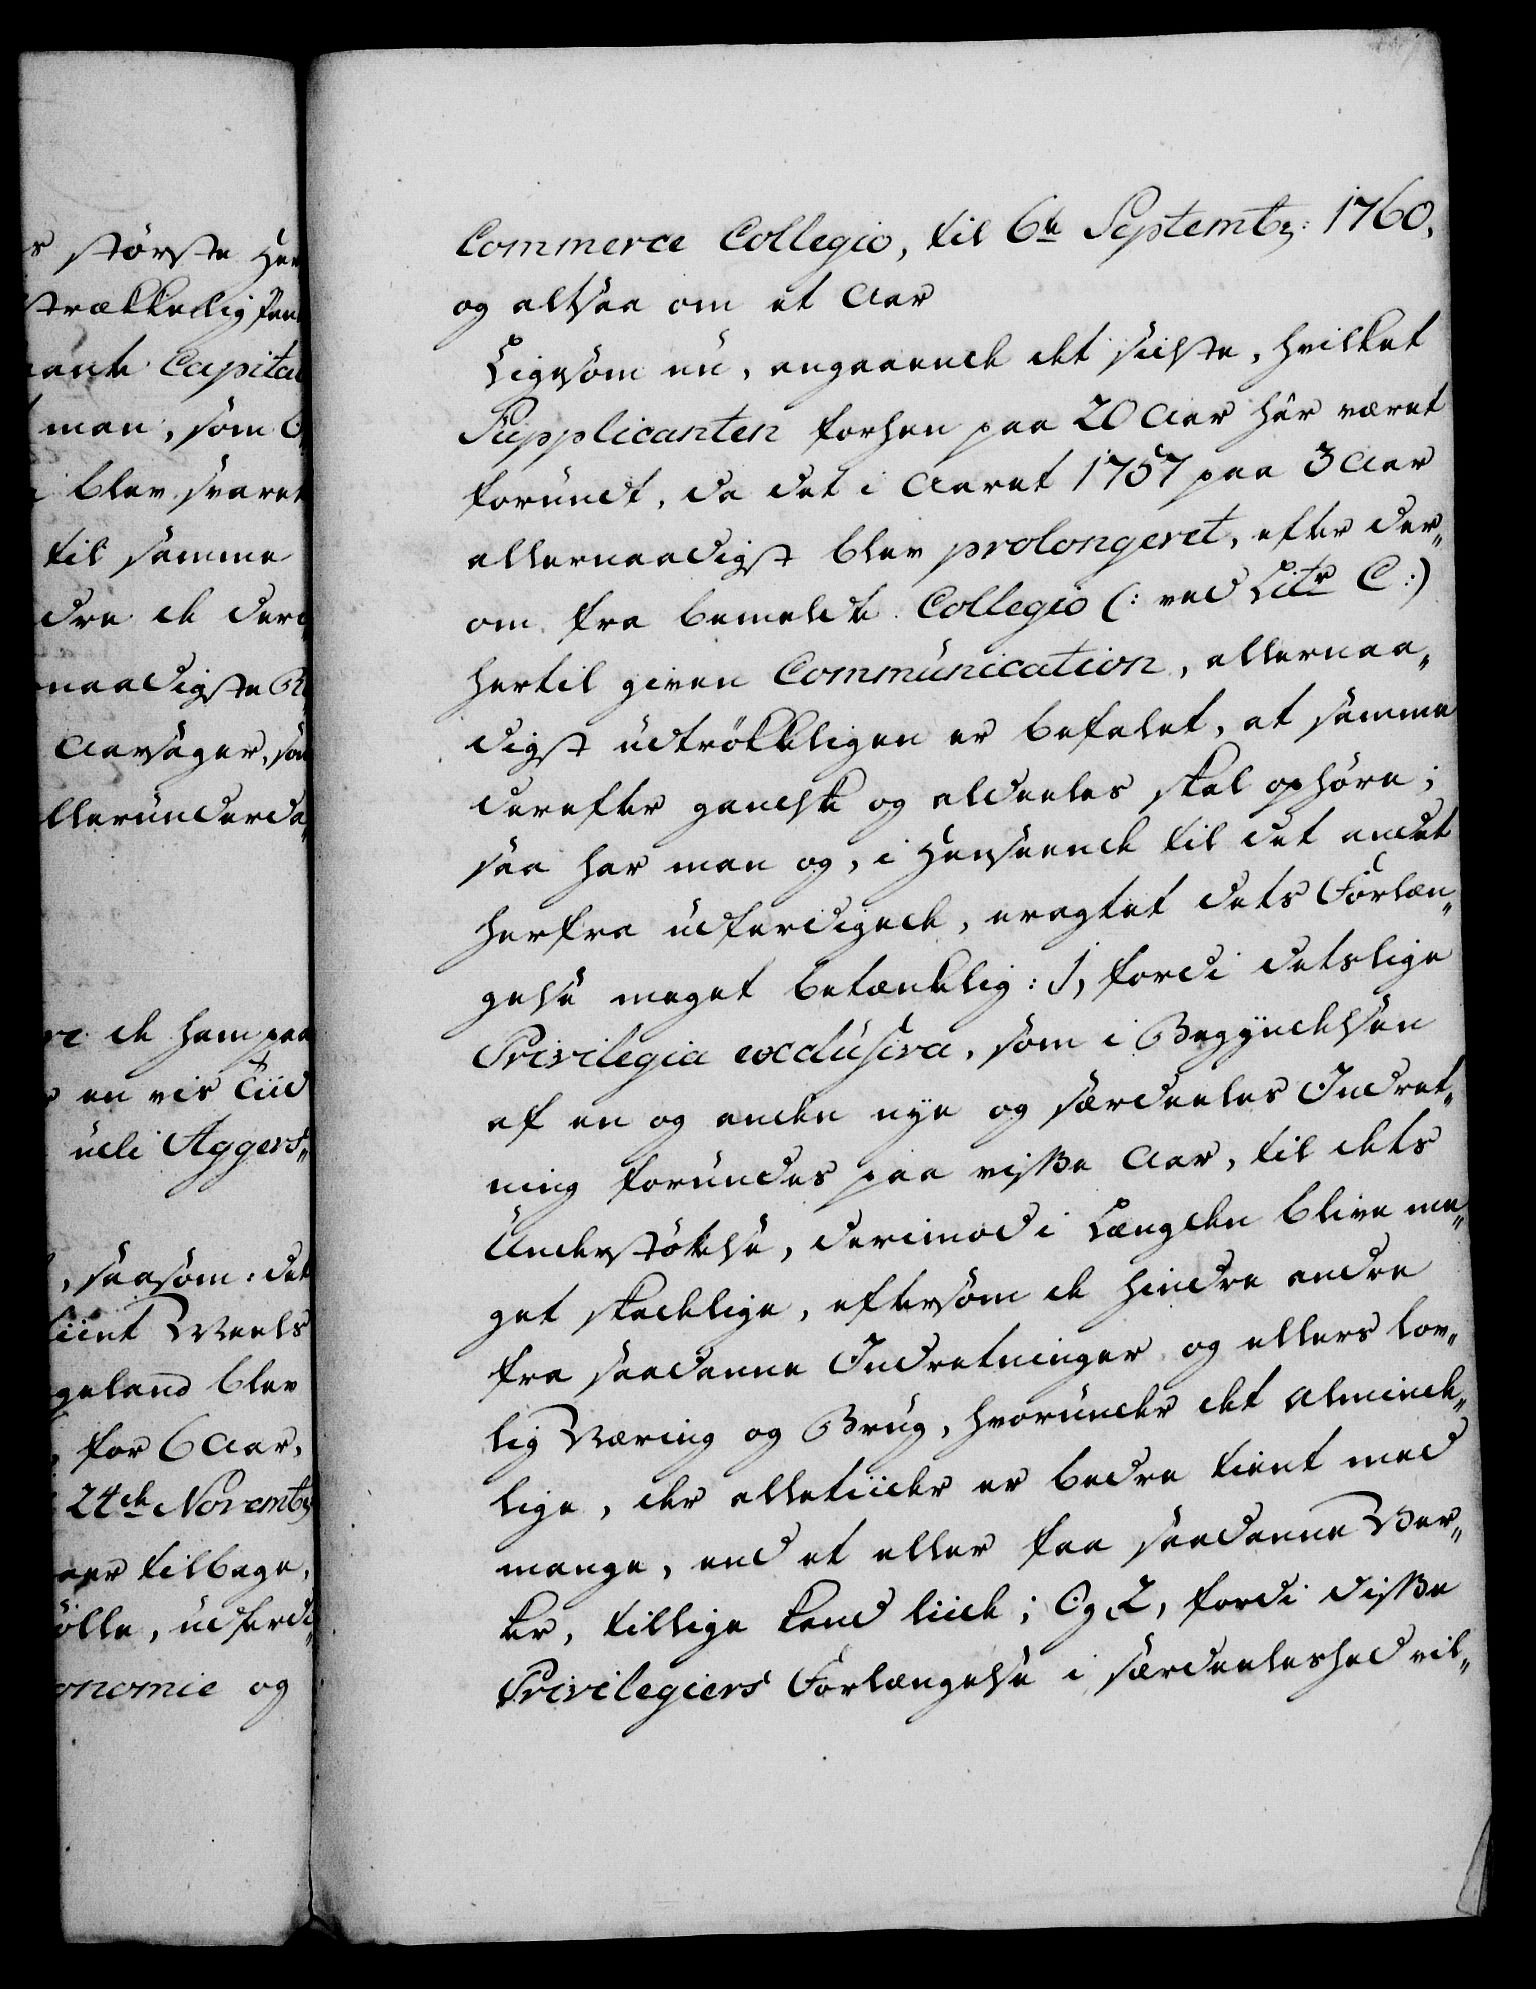 s største Her
strækkelig fun
ante Capita
man, som
blev svaret
til samme
dre de der
naadigste R
Aarsager, som
llerunderda„
de ham paa
en vis Tiid
udi Aggers„
, saasom: det
tiint Weels
geland blev
for 6 Aar,
24de Novembr
aar tilbage,
ølle, udferdi„
onomie og
Commerce Collegio, til 6te Septembr: 1760,
og altsaa om et Aar
Ligesom nu, angaaende det sidste, hvilket
Supplicanten forhen paa 20 Aar har været
forundt, da det i Aaret 1757 paa 3 Aar
allernaadigst blev prolongeret, efter der„
om fra bemeldte Collegio (: ved Litr C:)
hertil given Communication, allernaa„
digst udtrøkkeligen er befalet, at samme
derefter gandske og aldeeles skal ophøre;
saa har man og, i Henseende til det andet
herfra udferdigede, eragtet dets Forlæn„
gelse meget betænkelig: 1, fordi detslige
Privilegia exclusiva, som i Begyndelsen
af en og anden nye og særdeeles Indret„
ning forundes paa visse Aar, til dets
Understøtelse, derimod i Længden blive me„
get skadelige, eftersom de hindre andre
fra saadanne Indretninger og ellers lov„
lig Næring og Brug, hvorunder det alminde„
lige, der alletiider er bedre tient med
mange, end et eller faa saadanne Ver„
ker, tillige kand liide; Og 2, fordi disse
Privilegiers Forlængelse i særdeeleshed vil„